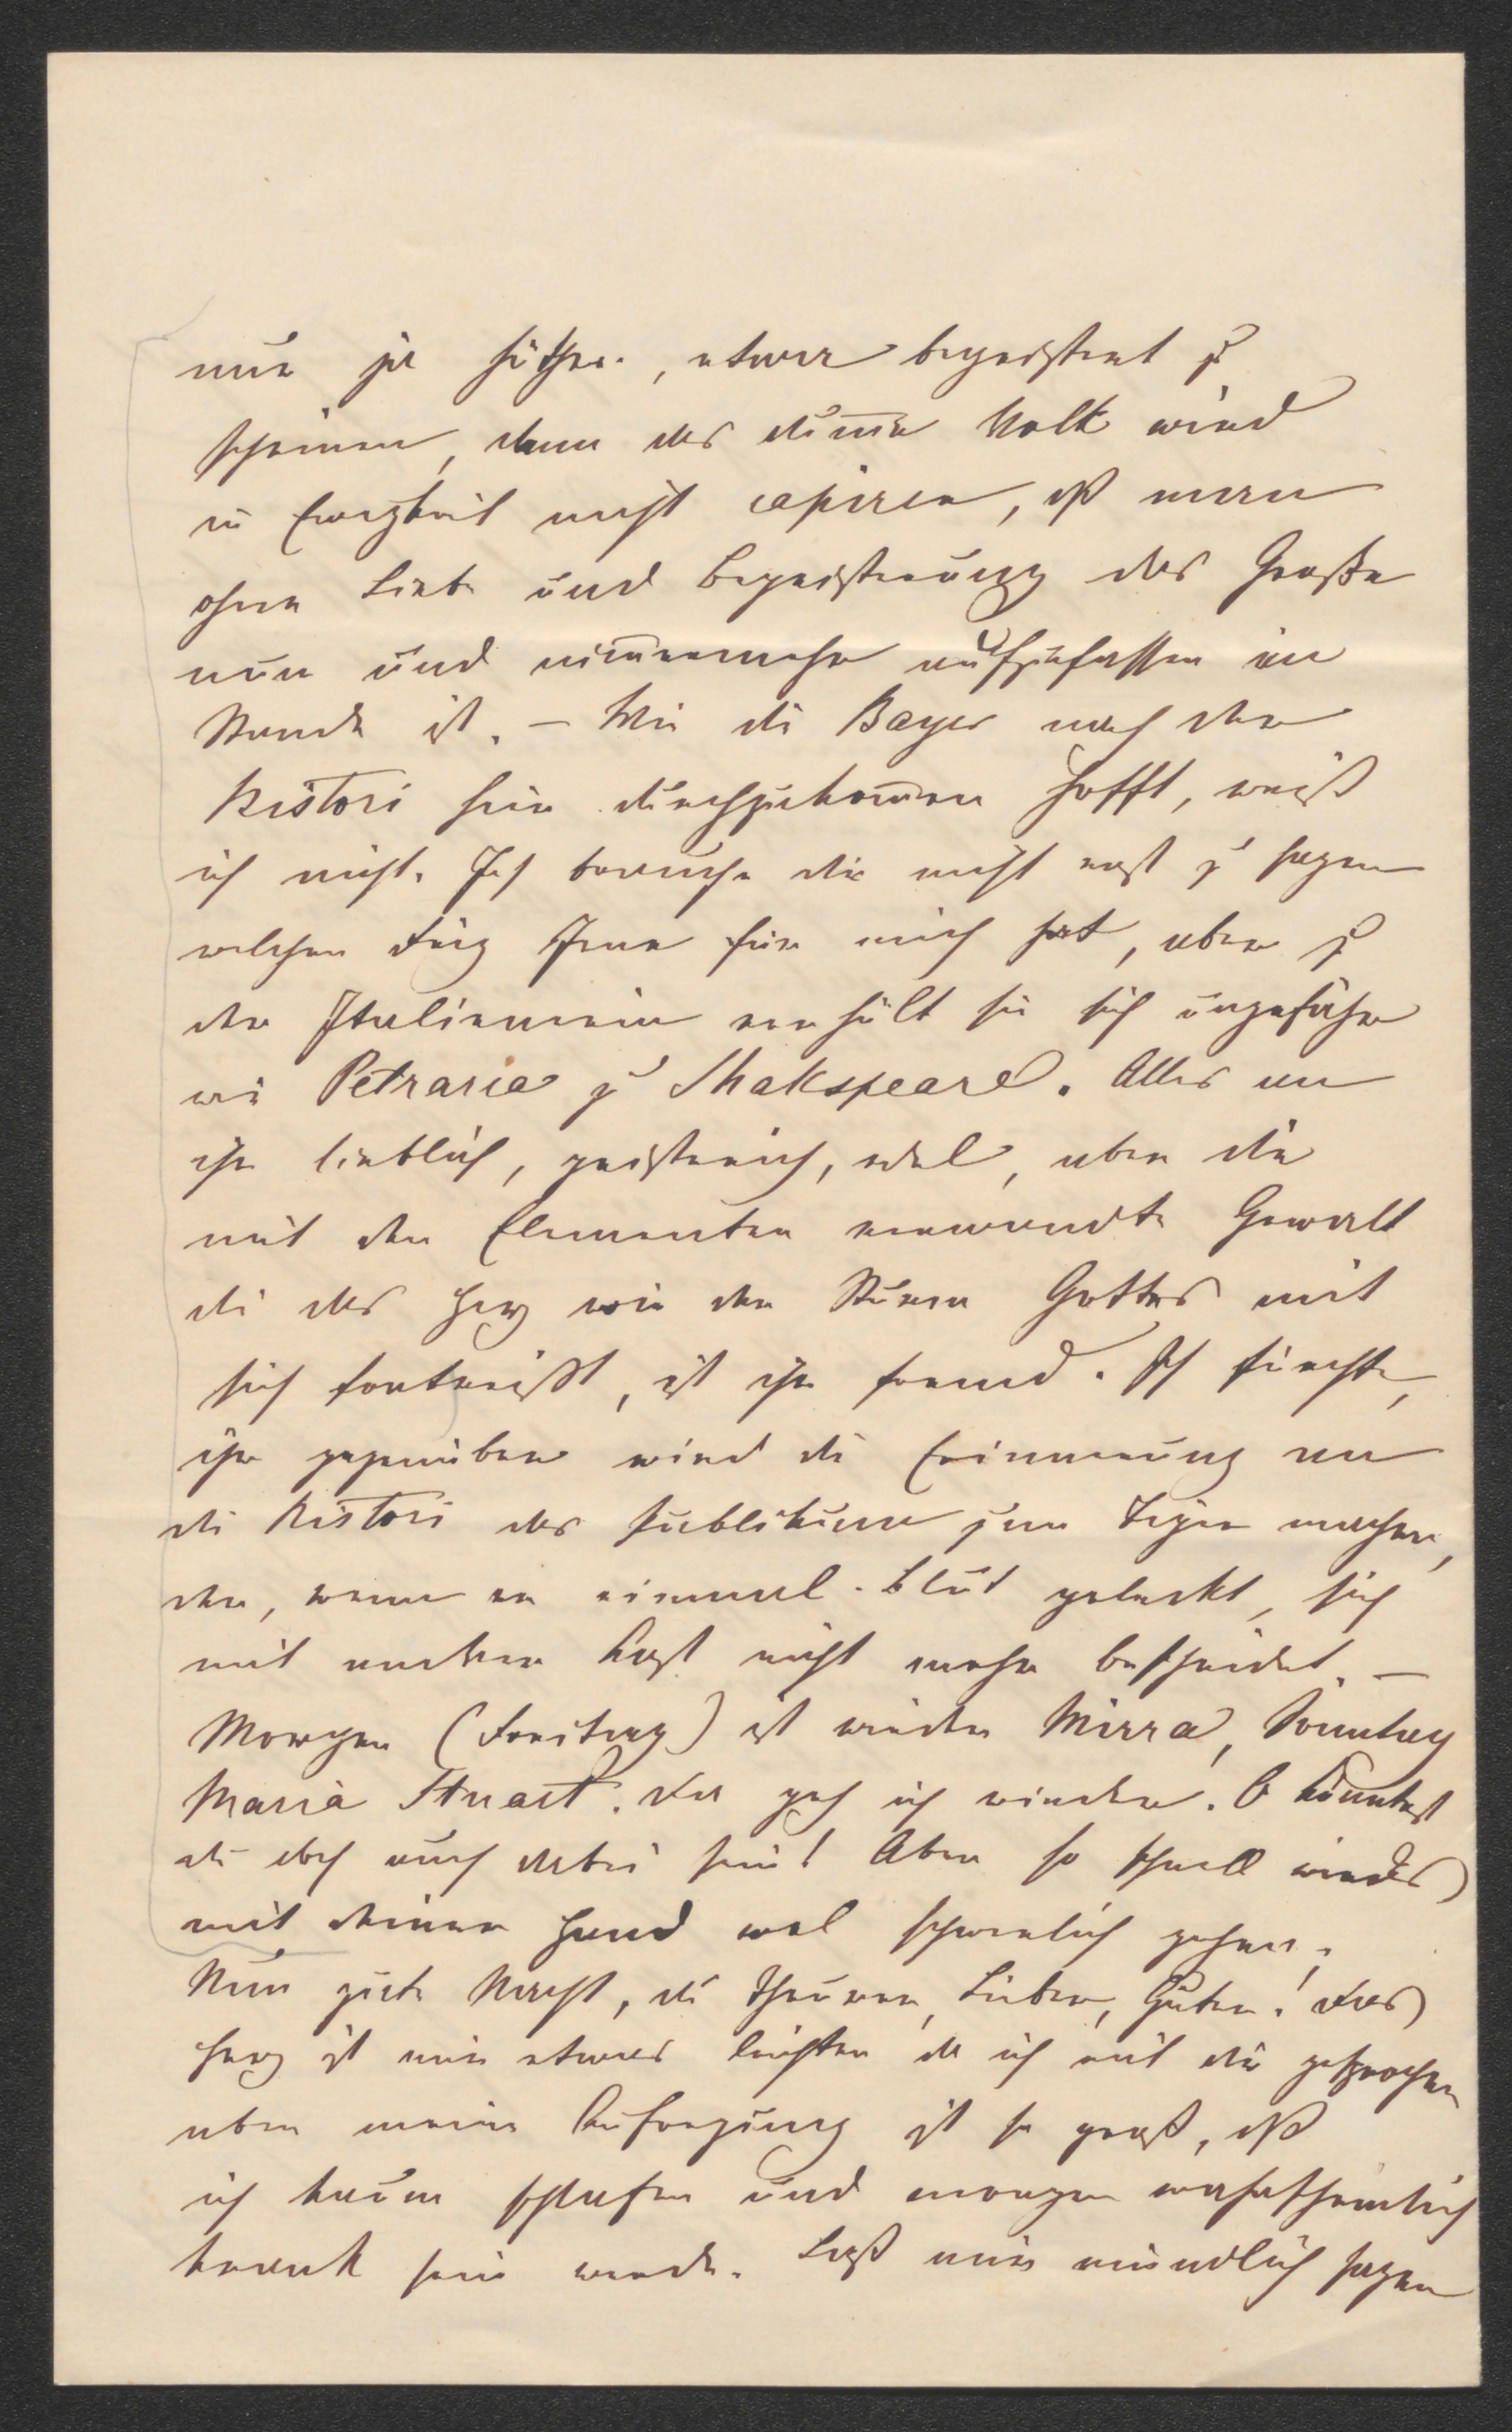 nur ja hüthen, etwa begeistert z
scheinen, denn das dum̅e Volk wird
in Ewigkeit nicht capiren, dß man
ohne Liebe und Begeisterung das Große
nun und nim̅ermehr aufzufassen im
Stande ist. – Wie die Bayer nach der
Ristori hier durchzukom̅en hofft, weiß
ich nicht. Ich brauche dir nicht erst zu sagen
welchen Reiz Jene für mich hat, aber z
der Italienerin verhält sie sich ungefähr
wie Petrarca zu Shakspeare. Alles an
ihr lieblich, geistreich, edel, aber die
mit den Elementen verwandte Gewalt
die das Herz wie der Sturm Gottes mit
sich fortreißt, ist ihr fremd. Ich fürchte,
ihr gegenüber wird die Erinnerung an
die Ristori das Publikum zum Tiger machen,
der, wenn er einmal Blut geleckt, sich
mit andrer Kost nicht mehr bescheidet. –
Morgen (Freitag) ist wieder Mirra, Sonntag
Maria Stuart. Da geh ich wieder. O könntest
du doch auch dabei sein! Aber so schnell wirds
mit deiner Hand wol schwerlich gehen.
Nun gute Nacht, du Theurer, Lieber, Guter! Das
Herz ist mir etwas leichter da ich mit dir gesprochen
aber meine Aufregung ist so groß, dß
ich kaum schlafen und morgen wahrscheinlich
krank sein werde. Laß mir mündlich sagen